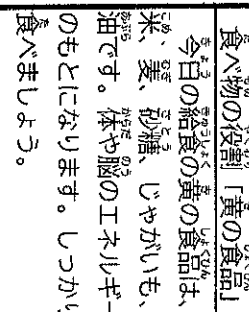 食べ物の役割「黄の食品」
今日の給食の黄の食品は、
米、麦、砂糖、じゃがいも、
油です。体や脳のエネルギー
のもとになります。しっかり
食べましょう。